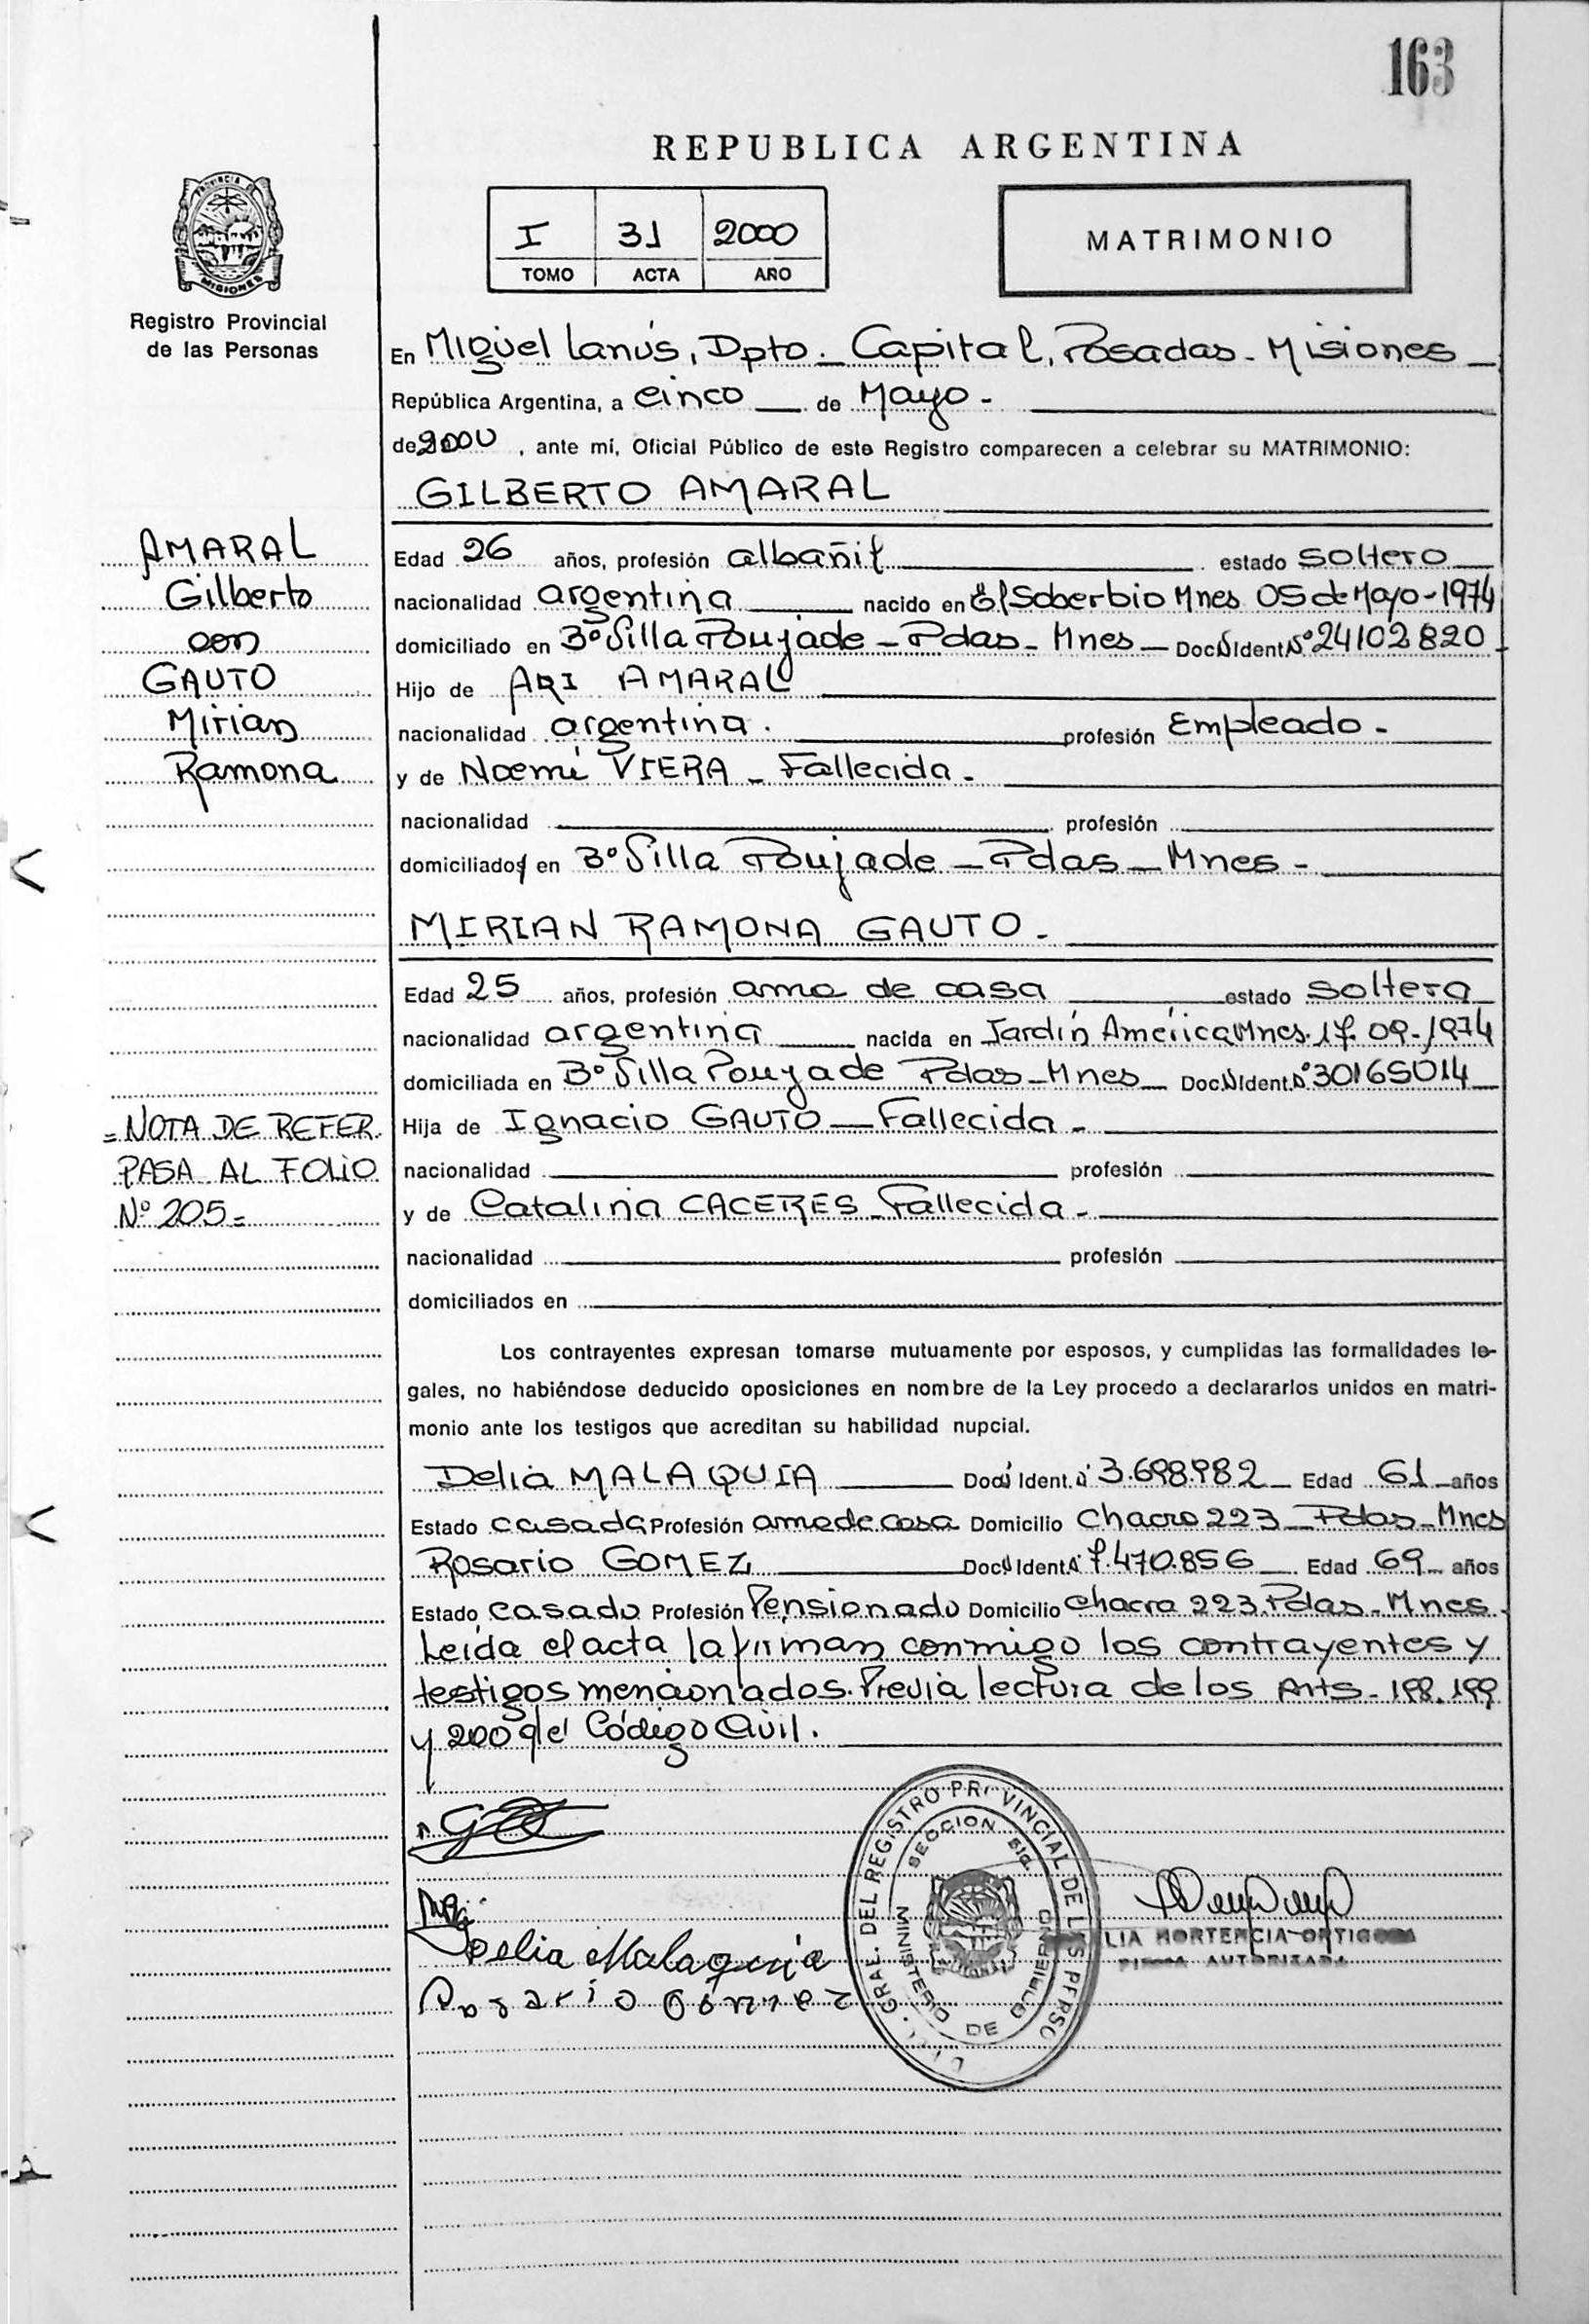 163
REPUBLICA ARGENTINA
PROVINCIA DE
MISIONES
Registro Provincial
de las Personas
I 31 2000
TOMO ACTA AÑO
MATRIMONIO
En Miguel Lanús, Dpto. Capital, Posadas - Misiones
República Argentina, a cinco de Mayo -
de 2000, ante mí, Oficial Público de este Registro comparecen a celebrar su MATRIMONIO:
GILBERTO AMARAL
AMARAL
Gilberto
con
GAUTO
Mirian
Ramona
Edad 26 años, profesión albañil estado soltero
nacionalidad argentina nacido en El Soberbio Mnes 05 de Mayo - 1974
domiciliado en Bº Villa Poujade - Pdas - Mnes - Doc. N Ident. Nº 24102820
Hijo de ARI AMARAL
nacionalidad argentina. profesión Empleado -
y de Noemí VIERA - Fallecida -
nacionalidad profesión
domiciliados en Bº Villa Poujade - Pdas - Mnes -
MIRIAN RAMONA GAUTO -
Edad 25 años, profesión ama de casa estado soltera
nacionalidad argentina nacida en Jardín América Mnes. 17. 09 - 1974
domiciliada en Bº Villa Poujade Pdas - Mnes Doc. N Ident. Nº 30165014
= NOTA DE REFER.
PASA AL FOLIO
Nº 205 =
Hija de Ignacio GAUTO - Fallecida -
nacionalidad profesión
y de Catalina CACERES - Fallecida -
nacionalidad profesión
domiciliados en
Los contrayentes expresan tomarse mutuamente por esposos, y cumplidas las formalidades le-
gales, no habiéndose deducido oposiciones en nombre de la Ley procedo a declararlos unidos en matri-
monio ante los testigos que acreditan su habilidad nupcial.
Delia MALAQUIA Doc. Ident. 3.698.982 Edad 61 años
Estado casada Profesión ama de casa Domicilio Chacra 223 - Pdas - Mnes
Rosario GOMEZ Doc. Ident. 7.470.856 Edad 69 años
Estado casado Profesión Pensionado Domicilio chacra 223. Pdas - Mnes
Leída el acta la firman conmigo los contrayentes y
testigos mencionados. Previa lectura de los Arts - 198. 199
y 200 del Código Civil.
Delia Malaquia
Rosario Gómez
GRAL. DEL REGISTRO PROVINCIAL DE LAS PERSO
SECCION
MINISTERIO DE GOBIERNO
LIA HORTENCIA ORTIGOZA
FIRMA AUTORIZADA